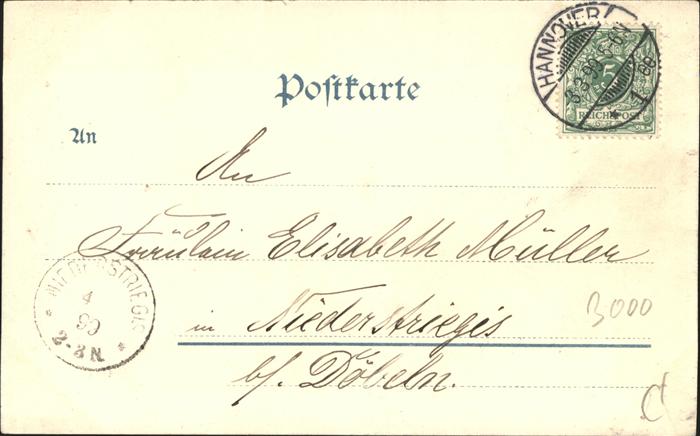 Postkarte
HANNOVER
8-9N
1
REICHSPOST
An
An
Fräulein Elisabeth Müller
NIEDERSTRIEGIS
4
90
2-3N
in Niederstriegis
3000
b/. Döbeln.